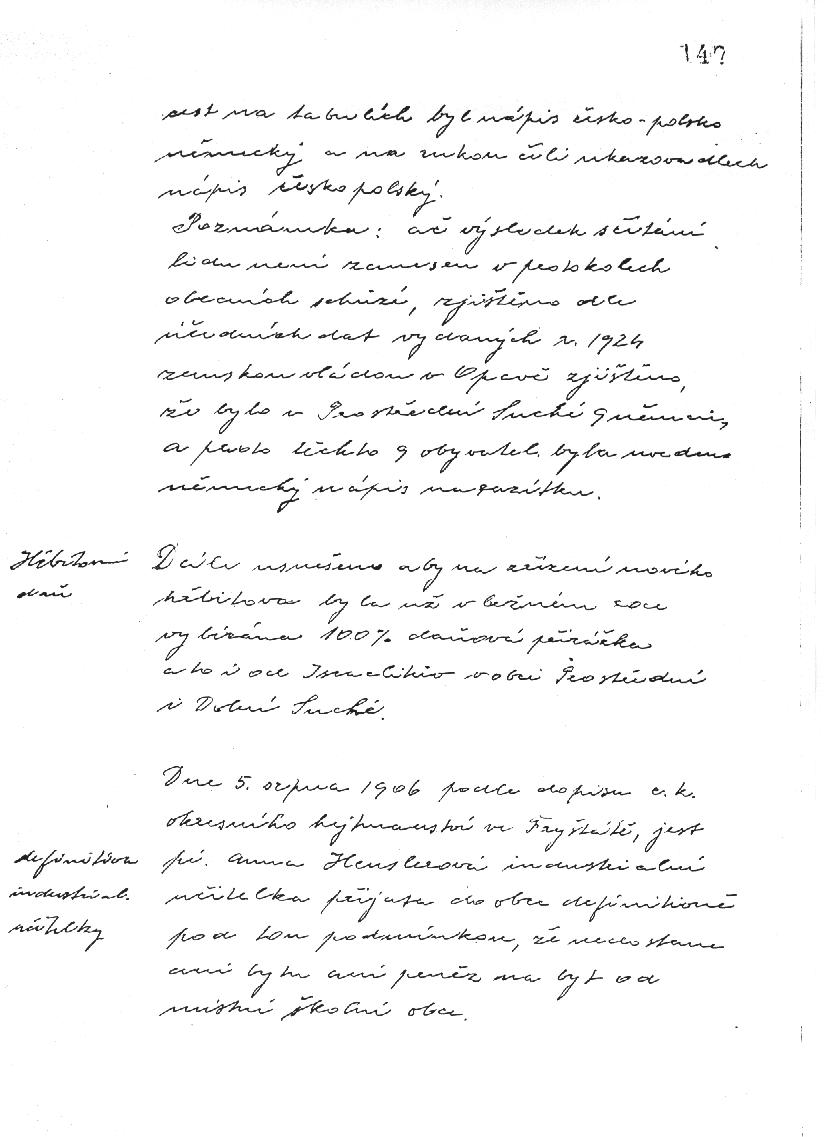 147
cest na tabulích byl nápis česko-polsko
německý a na rukou čili ukazovadlech
nápis česko polský.
Poznámka: ač výsledek sčítání
lidu není zanesen v protokolech
obecních schůzí, zjištěno dle
úředních dat vydaných r. 1924
zemskou vládou v Opavě zjištěno,
že bylo v Prostřední Suché 9 němců,
a proto těchto 9 obyvatel. byla uveden
německý nápis na rozcestku.
Hřbitovní
daň
Dále usnešeno aby na zřízení nového
hřbitova byla už v bežném roce
vybírána 100% daňová přirážka
a to i od Israelitův v obci Prostřední
i Dolní Suché.
Dne 5. srpna 1906 podle dopisu c.k.
okresního hejtmanství ve Fryštátě, jest
definitiva
industrial.
učitelky
pí. Anna Henslerová industrialní
učitelka přijata do obce definitivně
pod tou podmínkou, že nedostane
ani bytu ani peněz na byt od
místní školní obce.